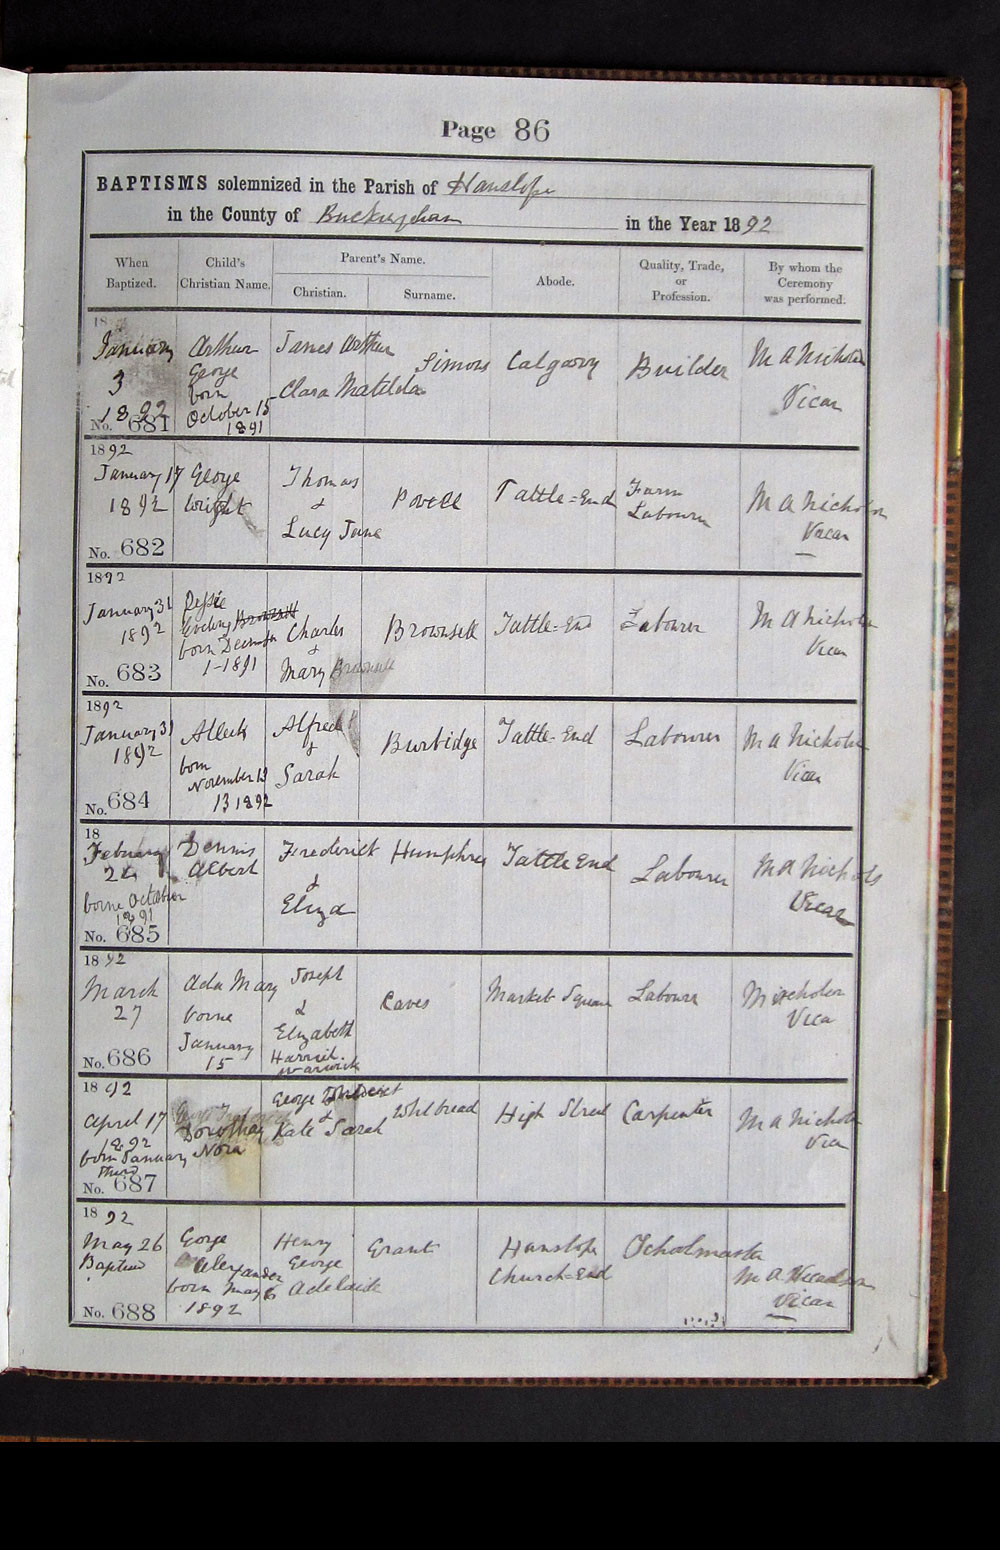 Page 86
BAPTISMS solemnized in the Parish of Hanslope
in the County of Buckingham in the Year 1892
When Baptized.
Child's Christian Name.
Parent's Name.
Christian.
Surname.
Abode.
Quality, Trade, or Profession.
By whom the Ceremony was performed.
18
January
3
1892
No. 681
Arthur
George
born
October 15
1891
James Arthur
Clara Matilda
Simons
Calgary
Builder
M A Nicholson
Vicar
1892
January 17
1892
No. 682
George
Wright
Thomas
&
Lucy Jane
Powell
Tattle=End
Farm
Labourer
M A Nicholson
Vicar
1892
January 31
1892
No. 683
Bessie
Eveling Brownsell
born December
1-1891
Charles
&
Mary Brownsell
Brownsell
Tattle=End
Labourer
M A Nicholson
Vicar
1892
January 31
1892
No. 684
Alleck
born
November 13
13 1892
Alfred
&
Sarah
Burbidge
Tattle-End
Labourer
M A Nicholson
Vicar
18
Febuary
borne October
1891
No. 685
Dennis
Albert
Frederick
&
Eliza
Humphrey
Tattle End
Labourer
M A Nichols
Vicar
1892
March
27
No. 686
Ada Mary
borne
January
15
Joseph
&
Elizabeth
Harriet
Warwick
Caves
Market Square
Labourer
M Nicholson
Vicar
1892
April 17
1892
born January
third
No. 687
Dorothay
Nora
George
&
Kate Sarah
High Street
Carpenter
M A Nicholson
Vicar
1892
May 26
Baptised
No. 688
Gorge
Alexander
born May 6
1892
Henry
George
Adelaide
Grant
Hanslope
Church=End
Schoolmaster
M A Nicholson
Vicar